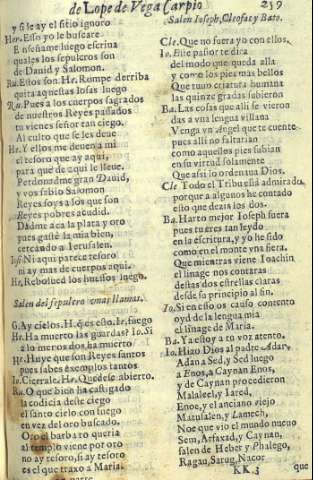 de Lope de Vega Carpio
259
y si le ay el sitio ignoro
Her. Esso yo le buscare
Enseñame luego escriua
quales los sepulcros son
de Dauid y Salomon.
Ra. Estos son. Her. Rompe derriba
quita aquestas losas luego
Ra. Pues a los cuerpos sagrados
de nuestros Reyes passados
tu vienes señor tan ciego.
Al culto que se les deue
Hr. Y ellos me deuen a mi
el tesoro que ay aqui,
para que de aqui le lleue.
Perdoname gran Dauid,
y vos sabio Salomon
Reyes soys a los que son
Reyes pobres acudid.
Dadme aca la plata y oro
pues gastè la mia bien,
cercando a Ierusalen.
Ios. Ni aqui parece tesoro
ni ay mas de cuerpos aqui.
Hr. Rebolued los huessos luego.
Salen del sepulcro vnas llamas.
G. Ay cielos. H. q̃ es esto. Ir. fuego
Hr. Ha muerto las guardas? Io. Si
a lo menos dos ha muerto
Hr. Huye que son Reyes santos
pues sabes exemplos tantos
Io. Cierrale. Hr. Quedese abierto.
Ra. O que bien ha castigado
la codicia deste ciego
el santo cielo con fuego
en vez del oro buscado.
Oro el barbaro queria
al templo viene por oro
no ay tesoro, si ay tesoro
es el que traxo a Maria.
Salen Ioseph, Cleofas y Bato.
Cle. Que no fuera yo con ellos.
Io. Esse pastor te dira
del modo que queda alla
y como los pies mas bellos
Que tuuo criatura humana
las quinze gradas subieron
Ba. Las cosas que alli se vieron
das a vna lengua villana
Venga vn Angel que te cuente
pues alli no faltarian
como aquellos pies subian
en su virtud solamente
Que assi lo ordenaua Dios.
Cle Todo el Tribu està admirado
porque a algunos he contado
esto que dezis los dos.
Ba. Harto mejor Ioseph fuera
pues tu eres tan leydo
en la escritura, y yo he sido
como en el monte vna fiera.
Que mientras viene Ioachin
el linage nos contaras
destas dos estrellas claras
desde su principio al fin.
Io. Si en esso os causo contento
oyd de la lengua mia
el linage de Maria.
Ba. Ya estoy a tu voz atento.
Io. Hizo Dios al padre Adan,
Adan a Sed, y Sed luego
a Enos, a Caynan Enos,
y de Caynan procedieron
Malaleel, y Iared,
Enoc, y el anciano viejo
Matusalen, y Lamech,
Noe que vio el mundo nueuo
Sem, Arfaxad, y Caynan,
salen de Heber y Phalego,
Ragau, Sarug, Nacor
KK 3
que